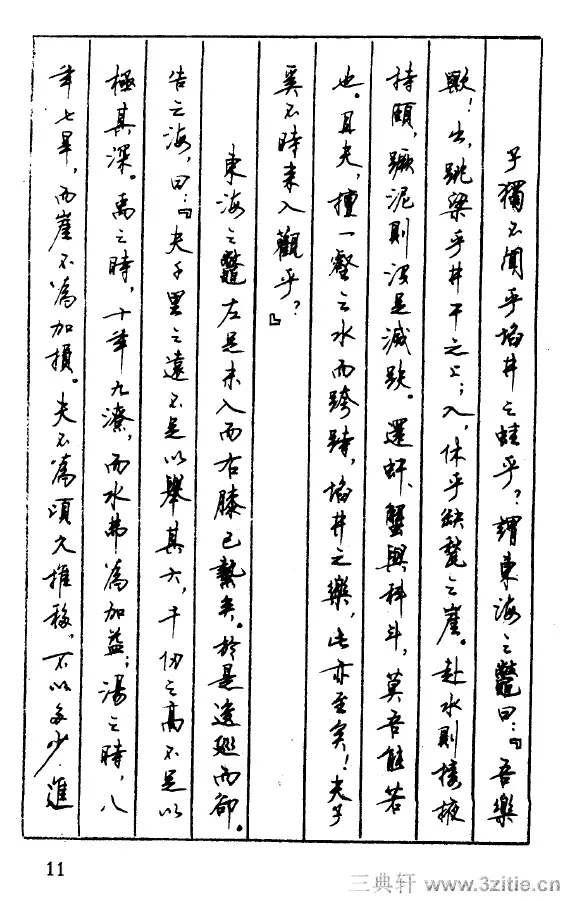 子獨不聞乎埳井之蛙乎？謂東海之鼈曰：『吾樂
歟！出，跳梁乎井干之上；入，休乎缺甃之崖。赴水則接掖
持頤，蹶泥則沒足滅跗。還虷、蟹與科斗，莫吾能若
也。且夫，擅一壑之水而跨跱，埳井之樂，此亦至矣！夫子
奚不時來入觀乎？』
東海之鼈左足未入而右膝已縶矣。於是逡巡而卻。
告之海，曰：『夫千里之遠不足以舉其大，千仞之高不足以
極其深。禹之時，十年九潦，而水弗為加益；湯之時，八
年七旱，而崖不為加損。夫不為頃久推移，不以多少進
11
三典轩 www.3zitie.cn